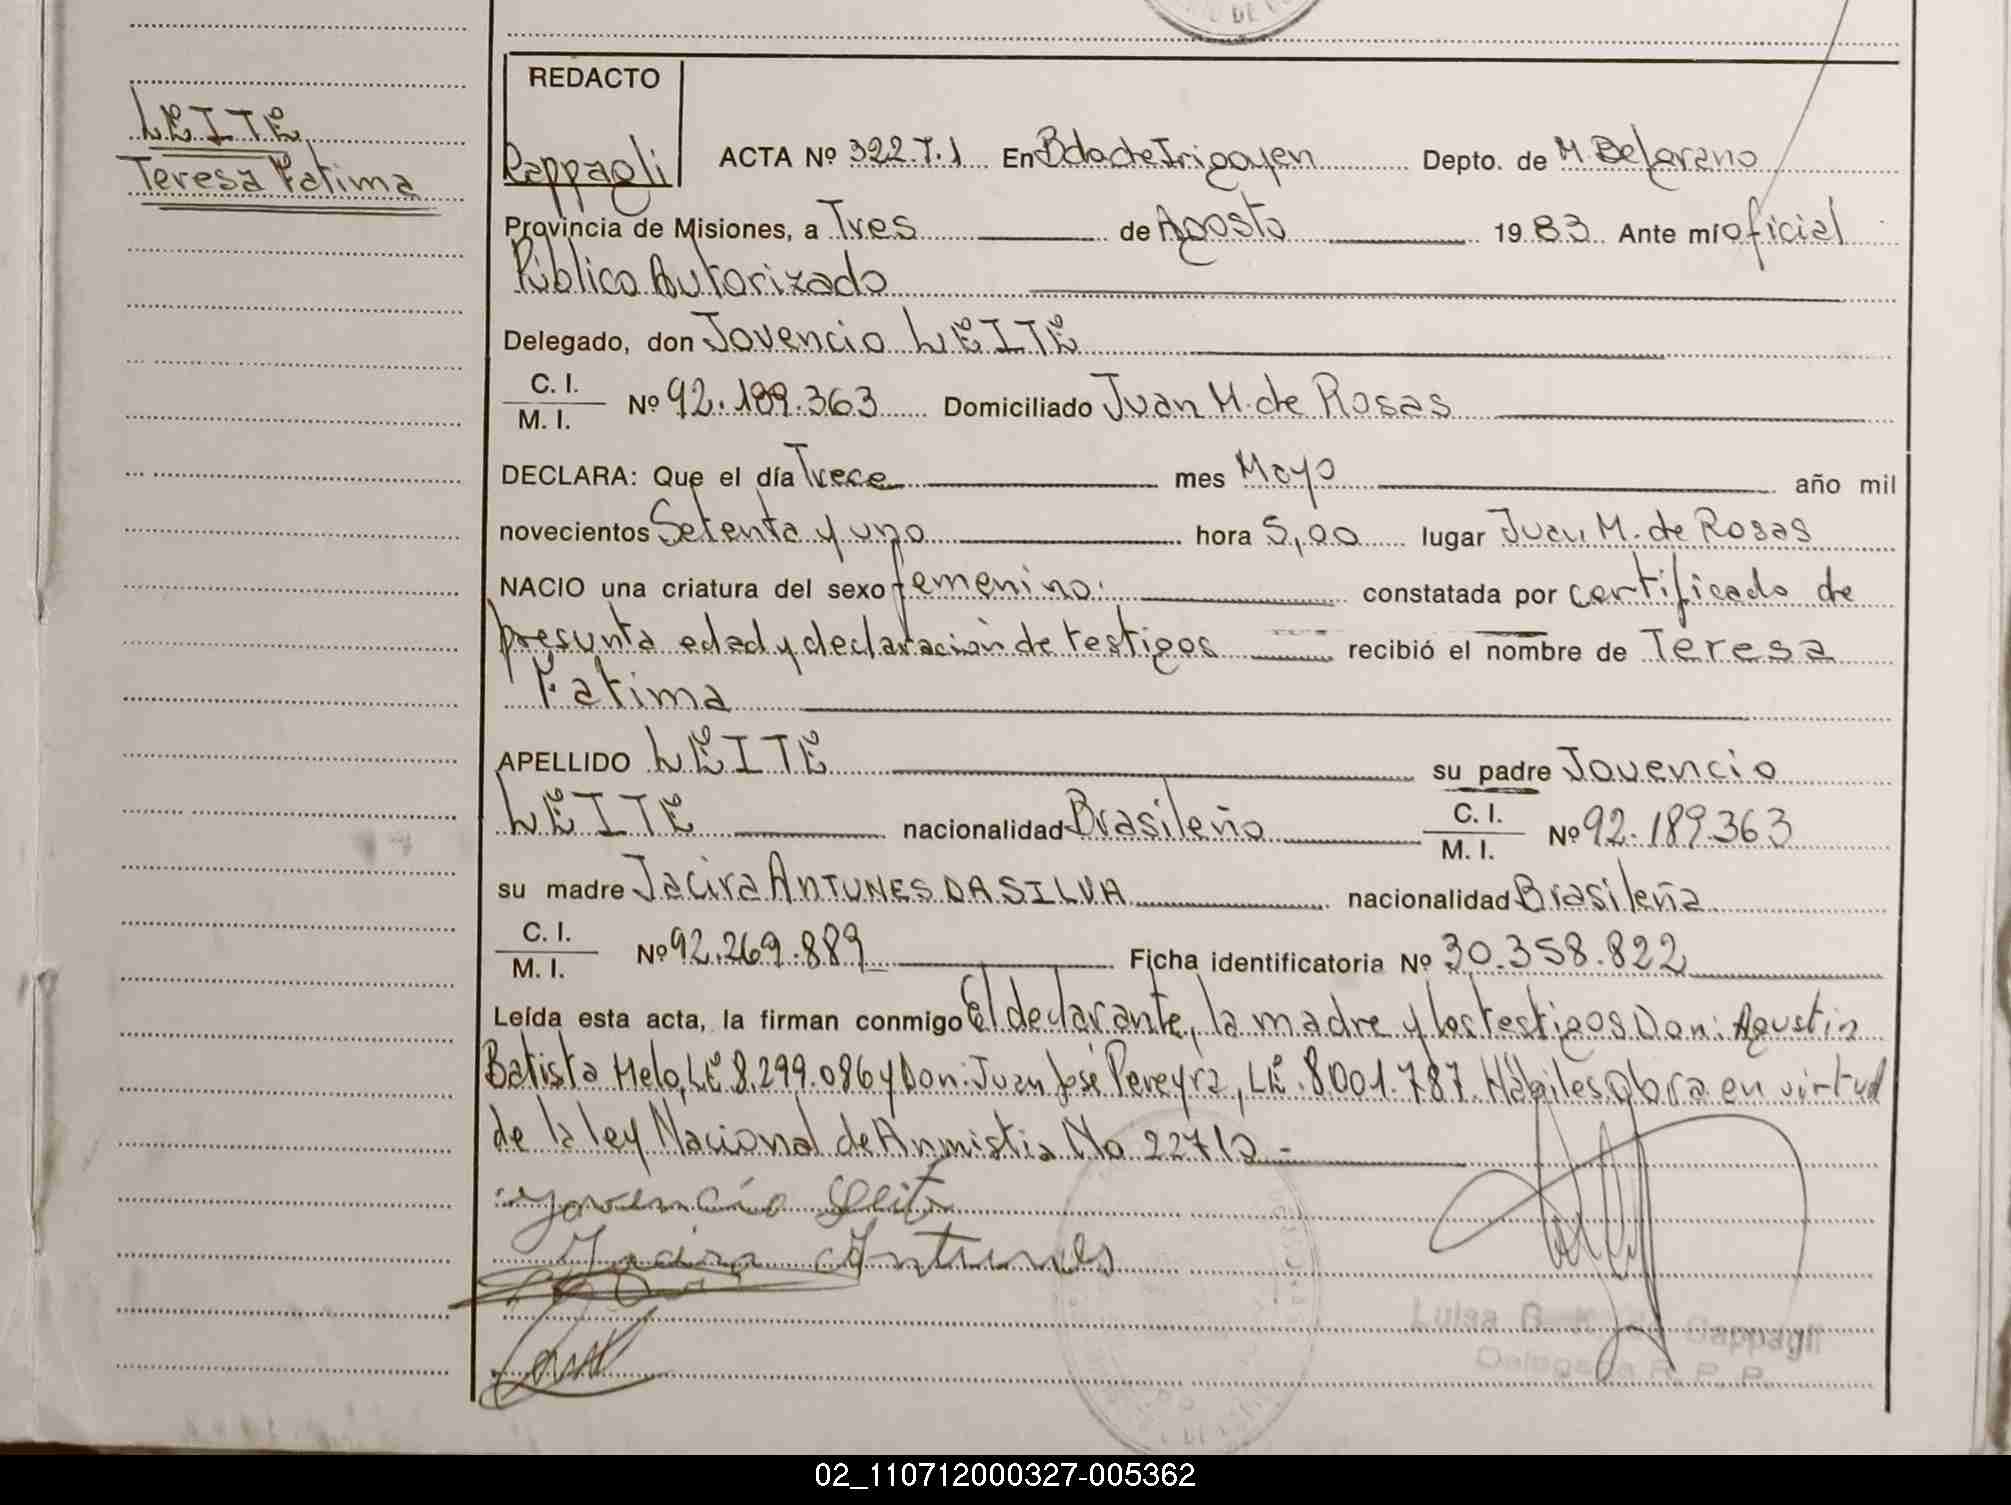 DE
LEITE
Teresa Fatima
REDACTO
Cappagli
ACTA Nº 322.T.1 En Bdo de Irigoyen Depto. de M. Belgrano
Provincia de Misiones, a Tres de Agosto 1983 Ante mí oficial
Público Autorizado
Delegado, don Jovencio LEITE
C. I.
M. I. Nº 92.189.363 Domiciliado Juan M. de Rosas
DECLARA: Que el día Trece mes Mayo año mil
novecientos Setenta y uno hora 5,00 lugar Juan M. de Rosas
NACIO una criatura del sexo femenino. constatada por certificado de
presunta edad y declaración de testigos recibió el nombre de Teresa
Fatima
APELLIDO LEITE su padre Jovencio
LEITE nacionalidad Brasileño C. I. M. I. Nº 92.189.363
su madre Jacira ANTUNES DA SILVA nacionalidad Brasileña
C. I.
M. I. Nº 92.269.889 Ficha identificatoria Nº 30.358.822
Leída esta acta, la firman conmigo El declarante, la madre y los testigos Don: Agustin
Batista Melo, LE 8.299.086 y Don: Juan José Pereyra, LE. 8001.787. Hábiles, Obra en virtud
de la ley Nacional de Anmistia No
Jovencio Leite
Jacira Antunes
Luisa Cappagli
Delegada R. P. P.
02_110712000327-005362